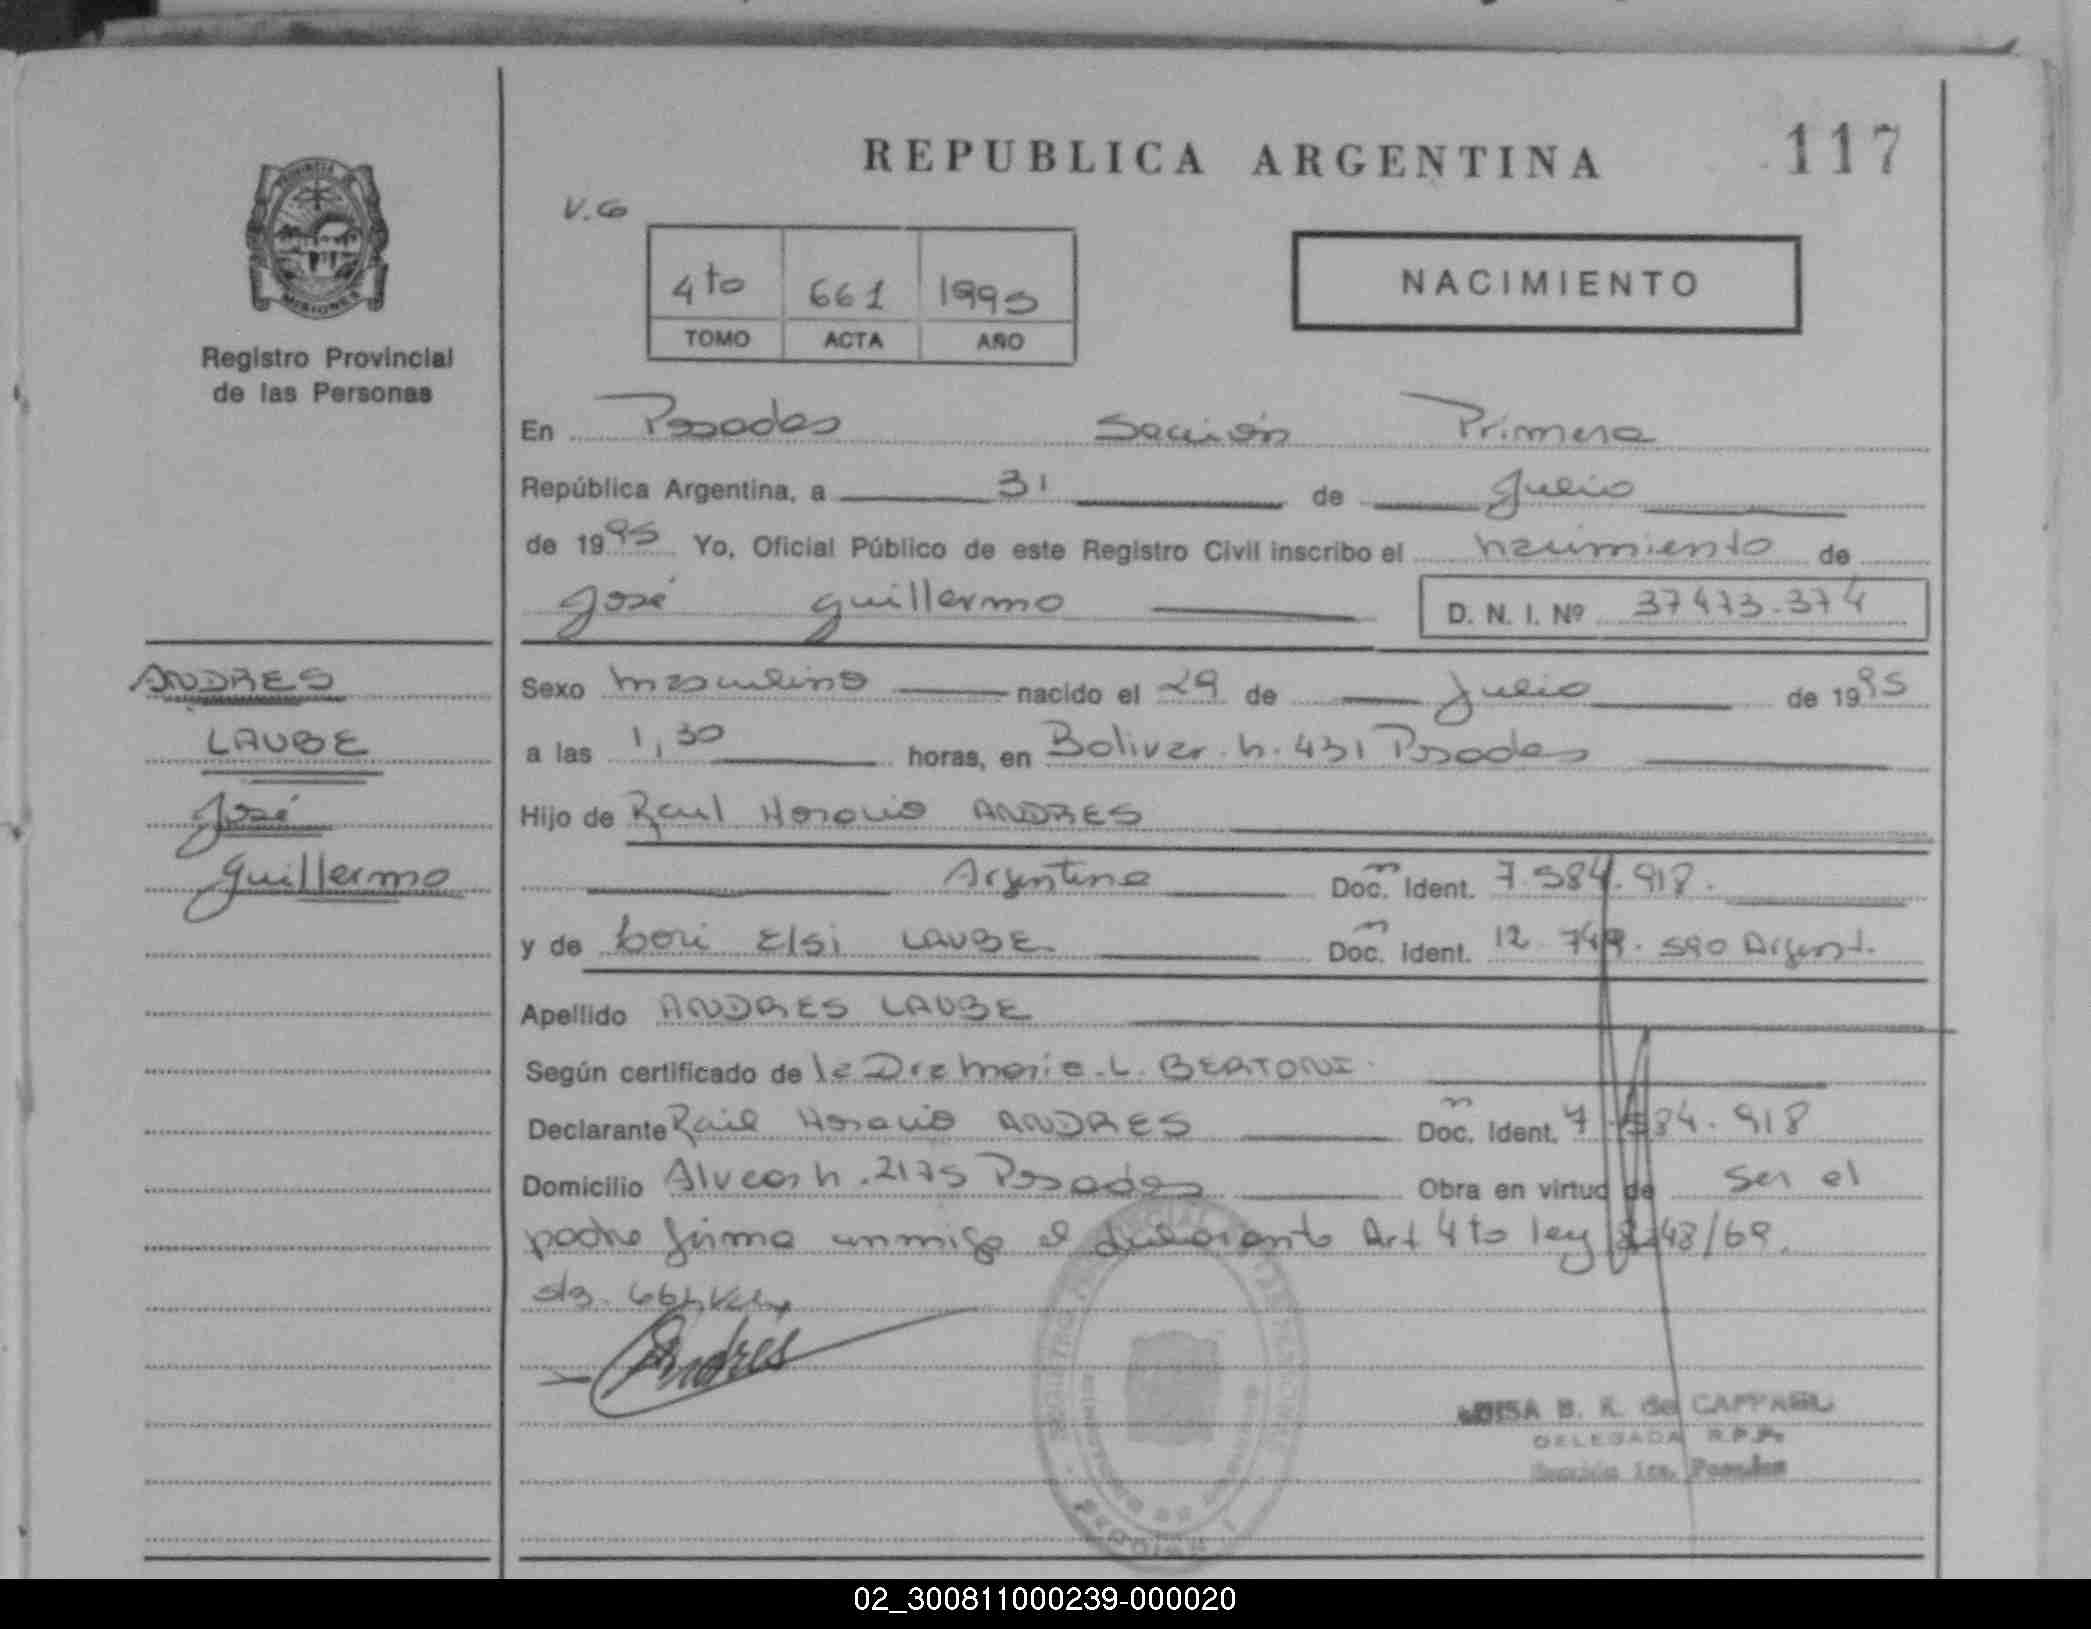 REPUBLICA ARGENTINA
117
4to 661 1995
TOMO ACTA AÑO
NACIMIENTO
Registro Provincial
de las Personas
En Posadas Sección Primera
República Argentina, a 31 de Julio
de 1995 Yo, Oficial Público de este Registro Civil inscribo el nacimiento de
José Guillermo D. N. I. Nº 37473.374
ANDRES
LAUBE
José
Guillermo
Sexo masculino nacido el 29 de Julio de 1995
a las 1,30 horas, en Bolivar n. 431 Posadas
Hijo de Raul Horacio ANDRES
Argentina Doc. Ident. 7.584.918.
y de Lori Elsi LAUBE Doc. Ident. 12.749.590 Argent.
Apellido ANDRES LAUBE
Según certificado de la Dra Maria L. BERTONI
Declarante Raul Horacio ANDRES Doc. Ident. 7.584.918
Domicilio Alvear n. 2175 Posadas Obra en virtud de ser el
padre firma conmigo el declarante Art 4to ley 48/69.
Andrés
B. R. de
DELEGADA R.P.P.
Sección 1ra. Posadas
02_300811000239-000020